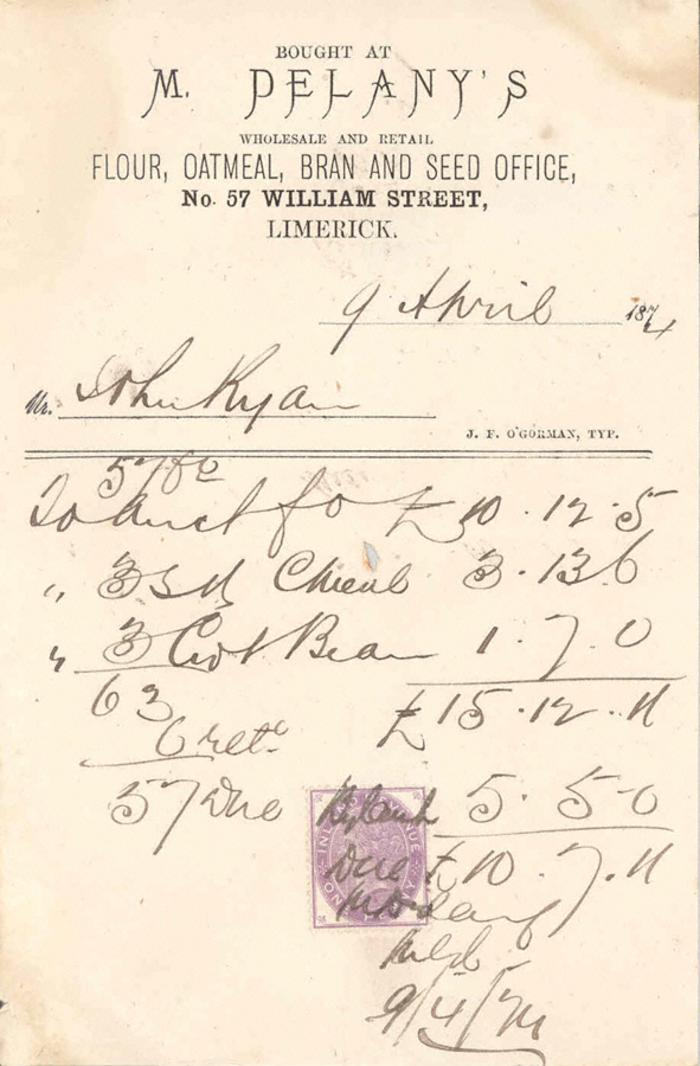 BOUGHT AT
M. DELANY'S
WHOLESALE AND RETAIL
FLOUR, OATMEAL, BRAN AND SEED OFFICE,
No. 57 WILLIAM STREET,
LIMERICK.
9 April 1874
Mr. John Ryan
J. F. O'GORMAN, TYP.
57
To £10.12.5
" 3 3.13.6
" 3 Cwt Bran 1.7.0
63 £15.12.11
6 retd
57 Due By Cash 5.5.0
INLAND REVENUE
ONE PENNY
Due £10.7.11
M Delany
9/4/74